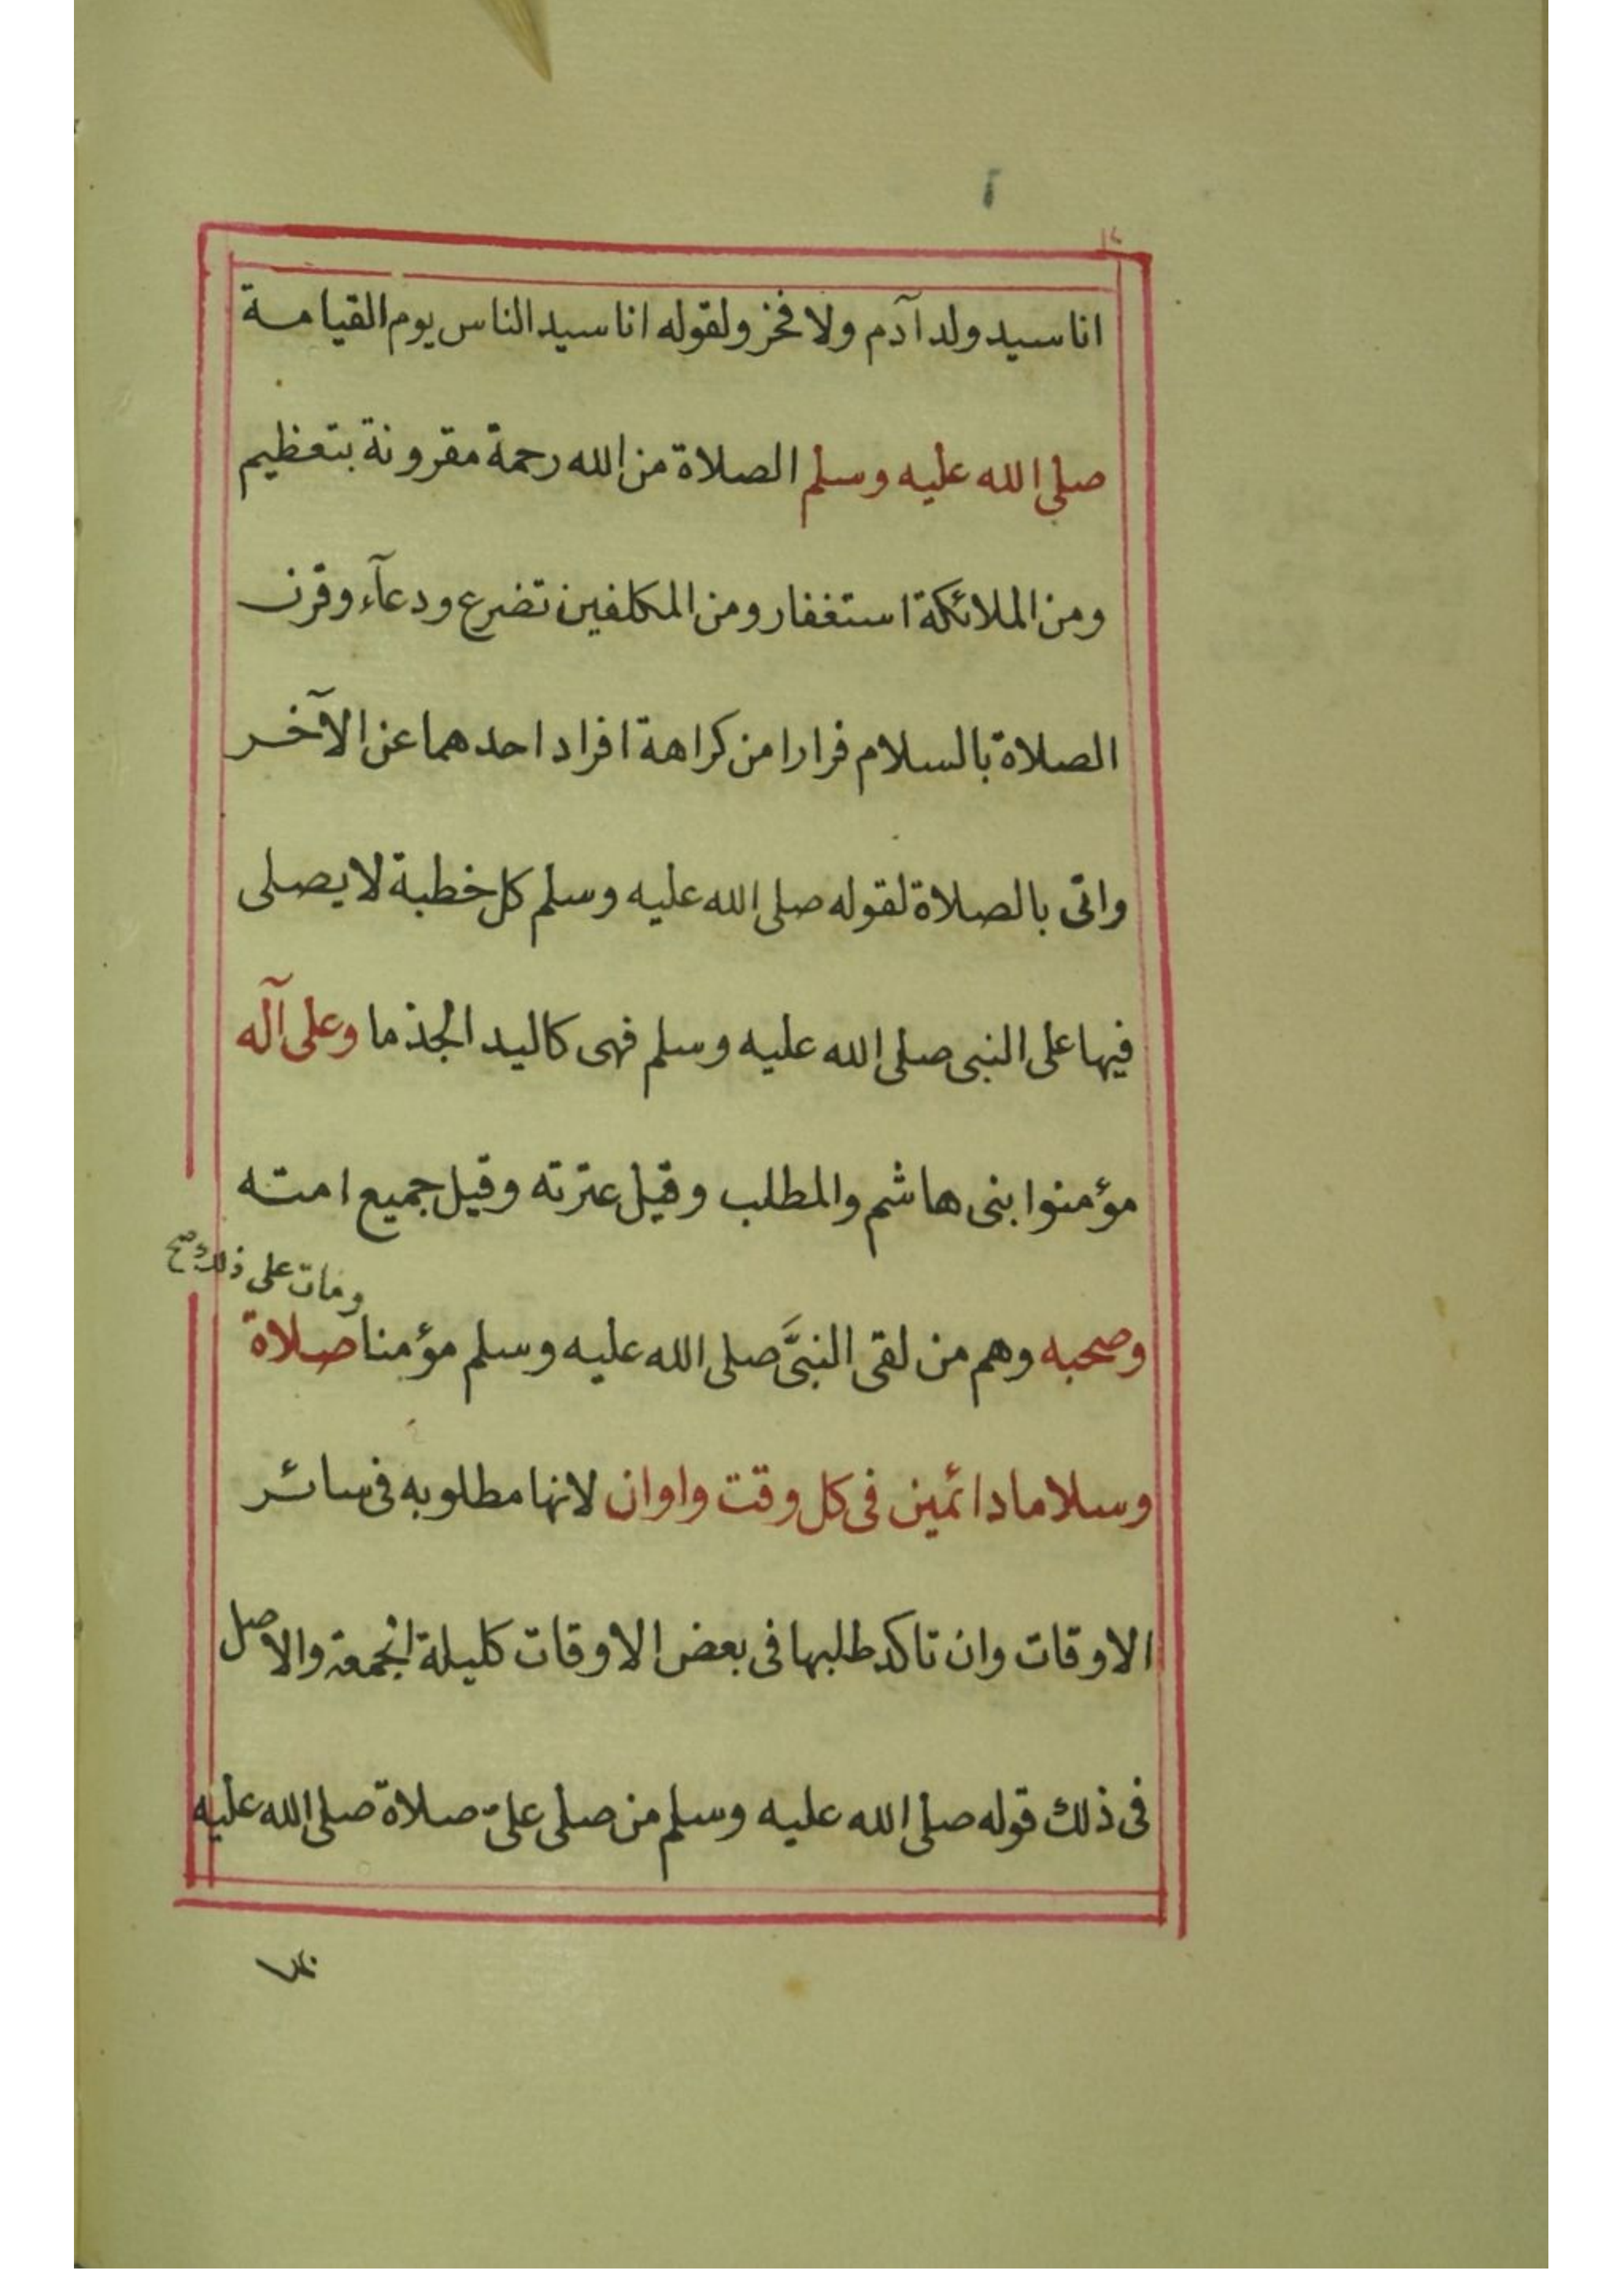 انا سيد ولد آدم ولا فخر ولقوله انا سيد الناس يوم القيامة
صلى الله عليه وسلم الصلاة من الله رحمة مقرونة بتعظيم
ومن الملائكة استغفار ومن المكلفين تضرع ودعآء وقرن
الصلاة بالسلام فرارا من كراهة افراد احدهما عن الآخر
واتى بالصلاة لقوله صلى الله عليه وسلم كل خطبة لا يصلى
فيها على النبى صلى الله عليه وسلم فهى كاليد الجذما وعلى آله
مؤمنوا بنى هاشم والمطلب وقيل عترته وقيل جميع امته
ومات على ذلك صح
وصحبه وهم من لقى النبىَّ صلى الله عليه وسلم مؤمنا صلاة
وسلاما دائمين فى كل وقت واوان لانها مطلوبه فى سائر
الاوقات وان تاكد طلبها فى بعض الاوقات كليلة الجمعة والاصل
فى ذلك قوله صلى الله عليه وسلم من صلى علىّ صلاة صلى الله عليه